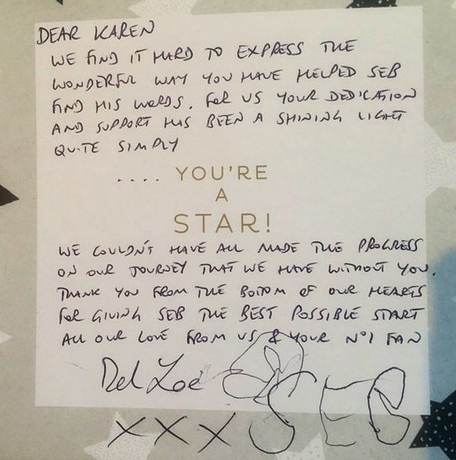 DEAR KAREN
WE FIND IT HARD TO EXPRESS THE
WONDERFUL WAY YOU HAVE HELPED SEB
FIND HIS WORDS. FOR US YOUR DEDICATION
AND SUPPORT HAS BEEN A SHINING LIGHT
QUITE SIMPLY
.... YOU'RE
A
STAR!
WE COULDN'T HAVE ALL MADE THE PROGRESS
ON OUR JOURNEY THAT WE HAVE WITHOUT YOU.
THANK YOU FROM THE BOTTOM OF OUR HEARTS
FOR GIVING SEB THE BEST POSSIBLE START
ALL OUR LOVE FROM US & YOUR Nº1 FAN
Del Zoe
XXX SEB